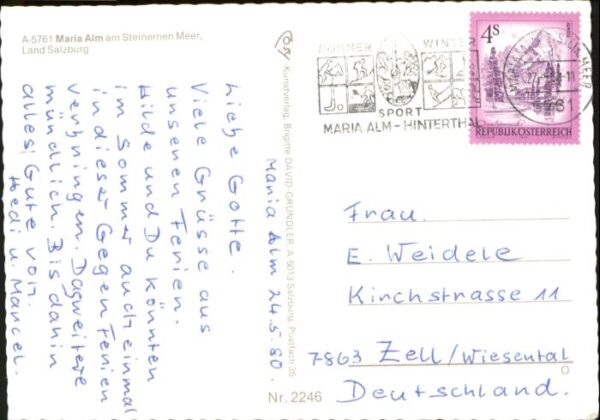 A-5761 Maria Alm am Steinernen Meer,
Land Salzburg
Maria Alm 24.5.80.
Liebe Gotte.
Viele Grüsse aus
unseren Ferien.
Hilde und Du könnten
im Sommer auch einmal
in dieser Gegen Ferien
verbringem. Dasweitere
mündlich. Bis dahin
alles Gute von.
Hedi u. Marcel.
Kunstverlag, Brigitte DAVID-GRÜNDLER, A-5013 Salzburg, Postfach 35
Nr. 2246
SOMMER WINTER
SPORT
MARIA ALM - HINTERTHAL
4S
REPUBLIK ÖSTERREICH
5761
Frau.
E. Weidele
Kirchstrasse 11
7863 Zell/Wiesental
Deutschland.